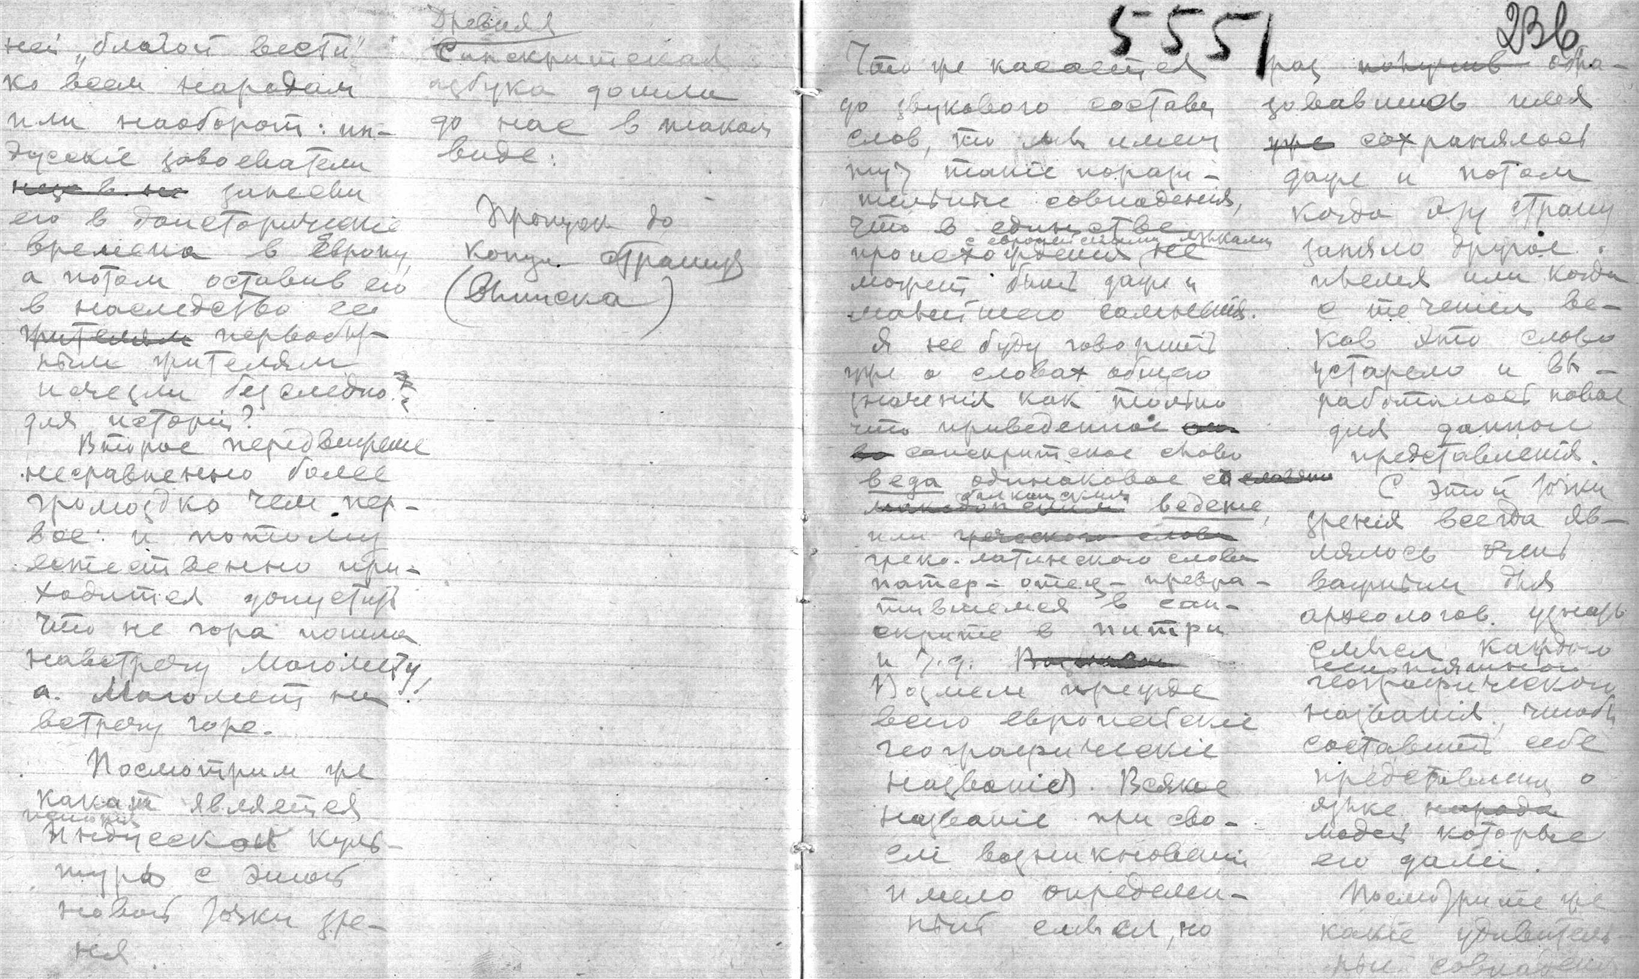 ней „благой вести"
ко всем народам
или наоборот: ин-
дусскіе завоеватели
занесли
его в доисторическіе
времена в Европу,
а потом оставив его
в наследство ее
жителям первобыт-
ным жителям
исчезли безследно
для исторіи?
Второе передвиженіе
несравненно более
громоздко чем пер-
вое: и потому
естественно при-
ходится допустить
что не гора пошла
навстречу Магомету,
а Магомет на
встречу горе.
Посмотрим же
какой является
исторія
Индусской куль-
туры с этой
новой точки зре-
нія
Древняя
Санскритская
азбука дошла
до нас в таком
виде:
Пропуск до
конца страницы
(Выписка)
5551
236
Что же касается
до звукового состава
слов, то мы имеем
тут такіе порази-
тельные совпаденія,
что в единстве
с европейскими языками
происхожденія не
может быть даже и
малейшего сомненія.
Я не буду говорить
уже о словах общего
значенія как только
что приведенное
санскритское слово
веда одинаковое со
веденіе,
или греческого слова
греко-латинского слова
патер - отец - превра-
тившемся в сан-
скрите в питри
и т. д.
Возьмем прежде
всего европейскіе
географическіе
названія. Всякое
названіе при сво-
ем возникновеніи
имело определен-
ный смысл, но
раз получив обра-
зовавшись имя
уже сохранялось
даже и потом
когда эту страну
заняло другое
племя или когда
с теченіем ве-
ков это слово
устарело и вы-
работалось новое
для данного
представленія.
С этой точки
зренія всегда яв-
лялось очень
важным для
археологов узнать
смысл каждого
географического
названія, чтобы
составить себе
представленіе о
языке народа
людей которые
его дали.
Посмотрите же
какіе удивитель-
ные совпаденія